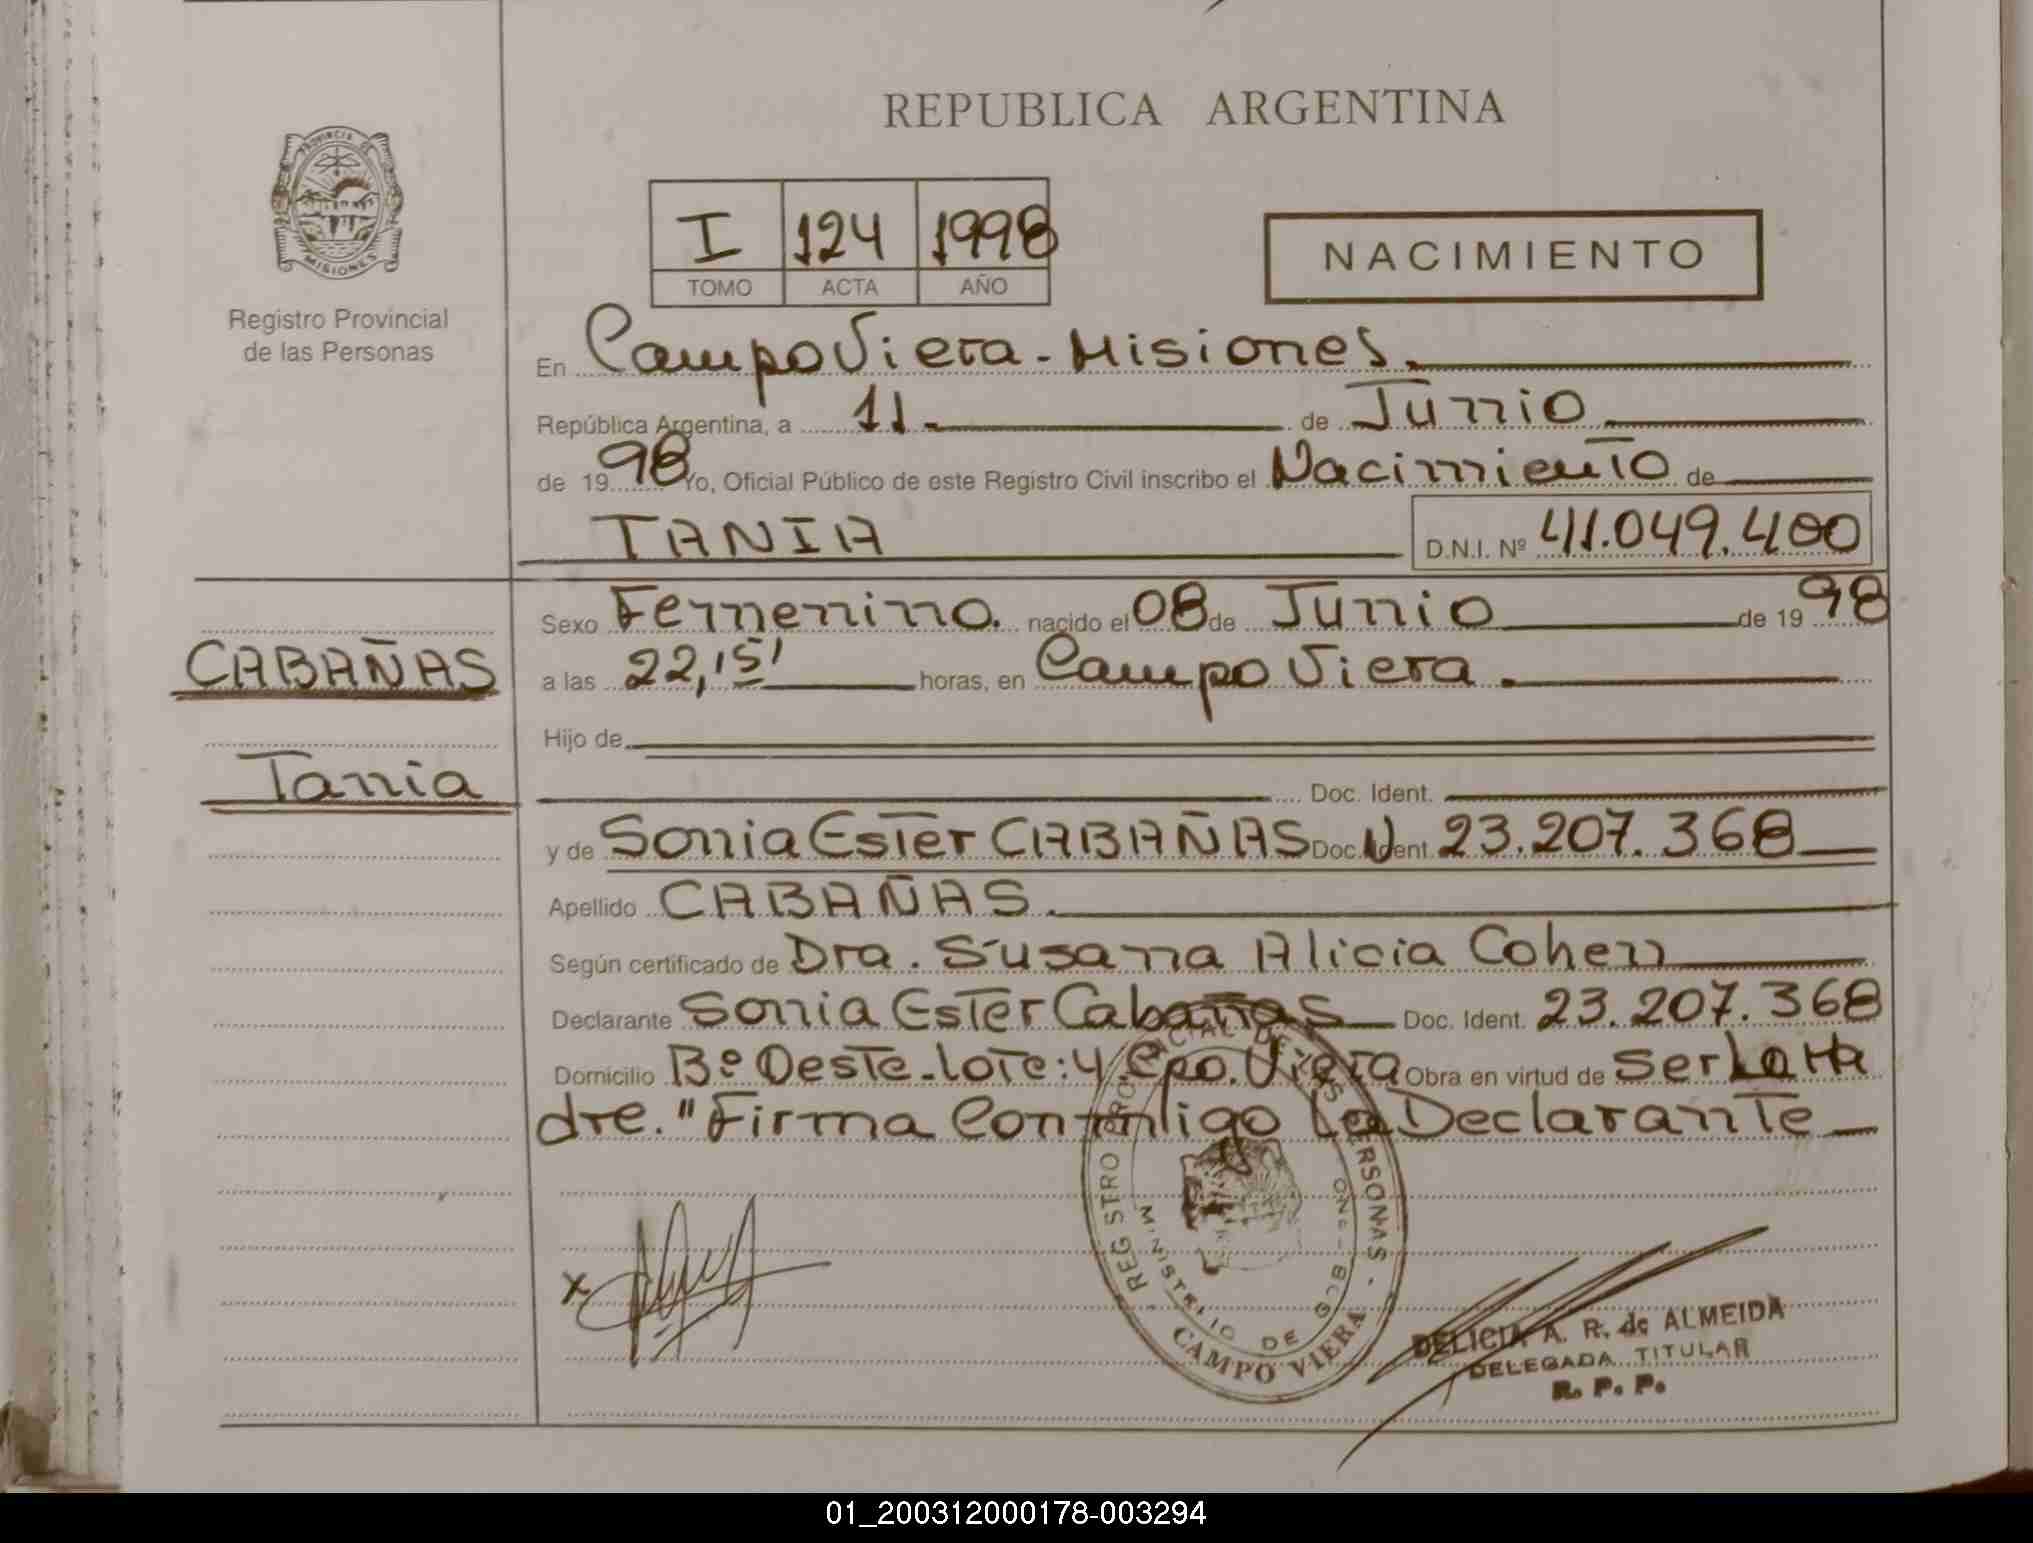 REPUBLICA ARGENTINA
PROVINCIA DE
MISIONES
Registro Provincial
de las Personas
I 124 1998
TOMO ACTA AÑO
NACIMIENTO
En Campo Viera - Misiones.
República Argentina, a 11. de Junio
de 1998 Yo, Oficial Público de este Registro Civil inscribo el Nacimiento de
TANIA D.N.I. Nº 41.049.400
Sexo Femenino. nacido el 08 de Junio de 1998
CABAÑAS
a las 22,15' horas, en Campo Viera.
Hijo de
Tania
Doc. Ident.
y de Sonia Ester CABAÑAS Doc. Ident. 23.207.368
Apellido CABAÑAS.
Según certificado de Dra. Susana Alicia Cohen
Declarante Sonia Ester Cabañas Doc. Ident. 23.207.368
Domicilio Bº Oeste-lote:4 Cpo. Viera Obra en virtud de ser La Ma
dre. "Firma Conmigo La Declarante
REGISTRO PROVINCIAL DE LAS PERSONAS
MINISTERIO DE
CAMPO VIERA
x
DELICIA A. R. de ALMEIDA
DELEGADA TITULAR
R. P. P.
01_200312000178-003294